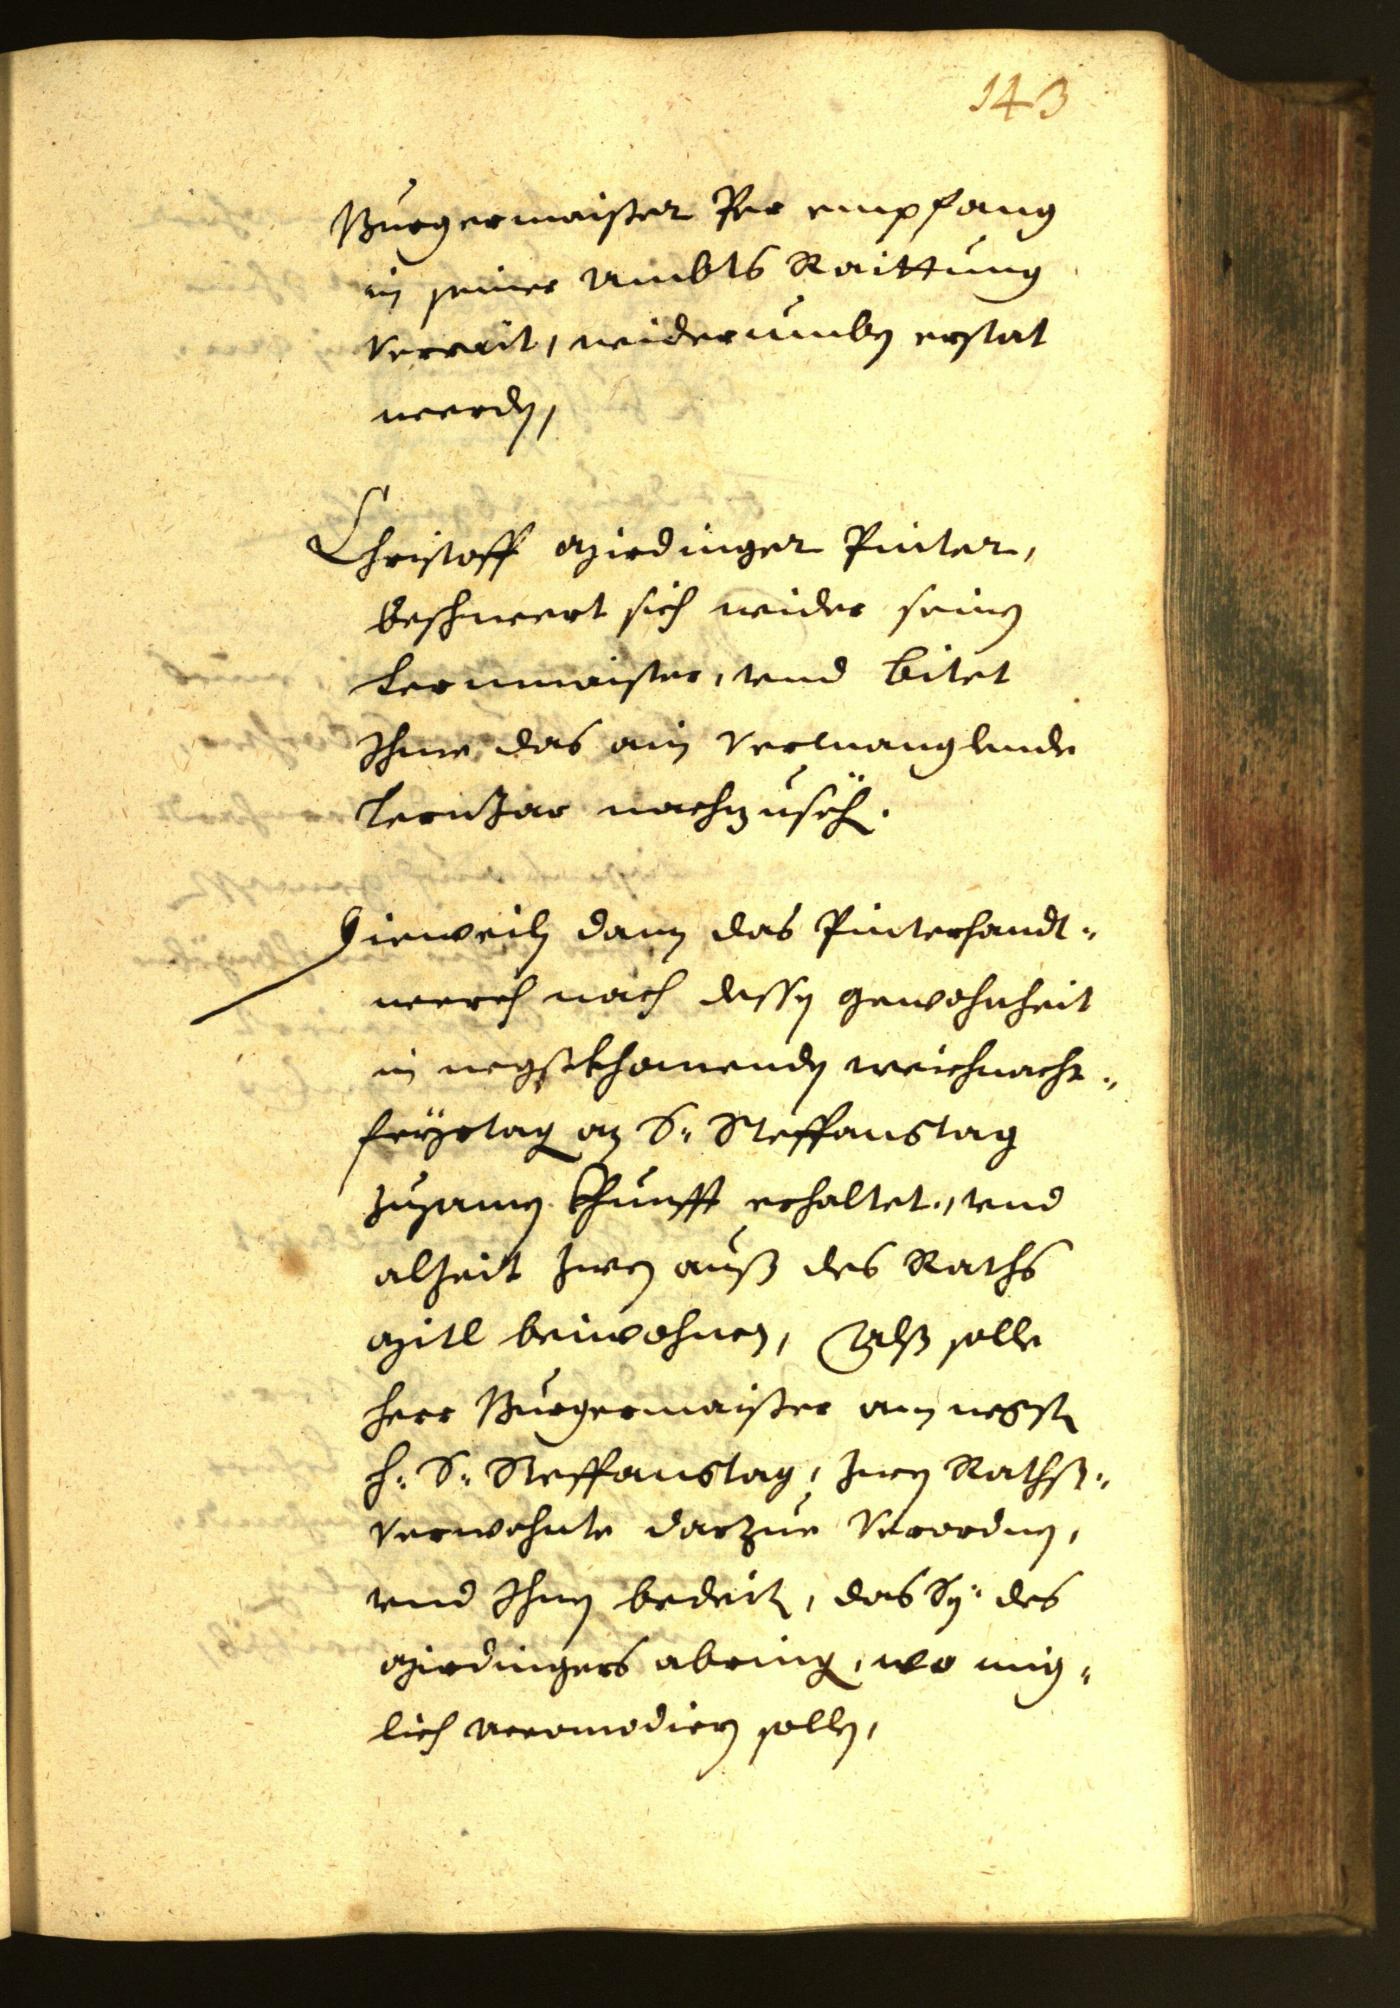 143
Burgermaister Per empfang
in seiner Ambts Raittung
Verrait, widerumben erstat
werden,
Christoff Mirdinger Pinter,
beschwert sich wider seinen
Lernmaister, vnd bitet
Ihme das ain Vermanglende
LernJar nachzusehen.
Dieweiln dann das Pinterhandt-
werch nach dessen gewohnheit
in negstkhomenden weichnacht-
feyrtag an S: Steffanstag
Zusamen Khunfft erhaltet, vnd
alzeit zwen auß des Raths
Mitl beiwohnen, Alß solle
Herr Burgermaister am negsten
H: S: Steffanstag, zwen Rathß-
verwohnte darzue Verordnen,
vnd Ihnen bedeiten, das Sy des
Mirdingers abring, wo mig-
lich accomodiern sollen,